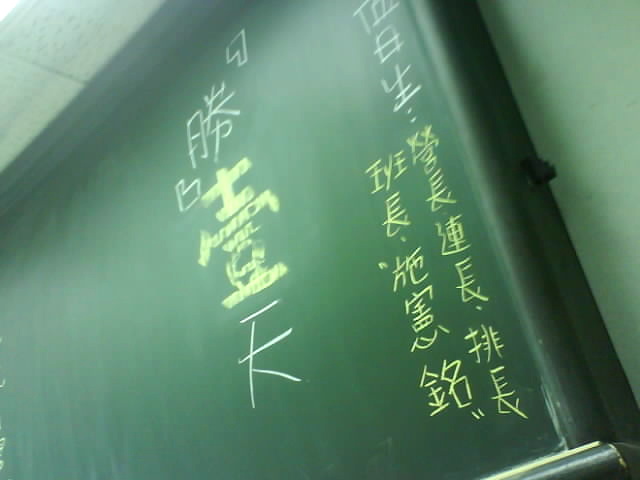 值日生:
營長.連長.排長
班長."施憲銘"
『勝』壹天